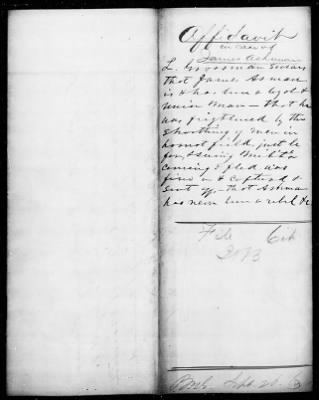 Affidavit
in case of
James Ashman
L. Grossman swears
that James Asman
is & has been a loyal &
Union Man – that he
was frightened by the
shooting of men in
field, just be
fore, & seeing
coming & fled was
fired on & captured &
sent up – that Ashman
has never been a rebel &c
File Cit
2093
Sept. 26, 63